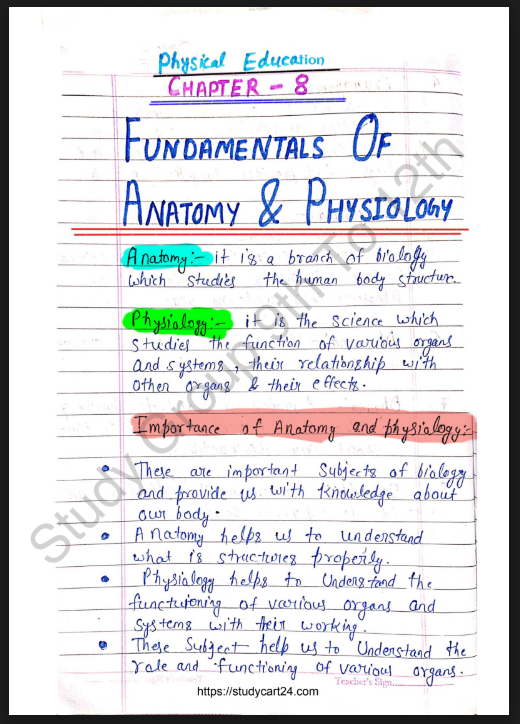 Physical Education
CHAPTER - 8
FUNDAMENTALS OF
ANATOMY & PHYSIOLOGY
Anatomy:- it is a branch of biology
which studies the human body structure.
Physiology:- it is the science which
studies the function of various organs
and systems, their relationship with
other organs & their effects.
Importance of Anatomy and physiology:-
• These are important subjects of biology
and provide us with knowledge about
our body.
• Anatomy helps us to understand
what is structures properly.
• Physiology helps to Understand the
functurioning of various organs and
systems with their working.
• These Subject help us to Understand the
role and functioning of various organs.
Teacher's Sign.
https://studycart24.com
Study Group 9th To 12th